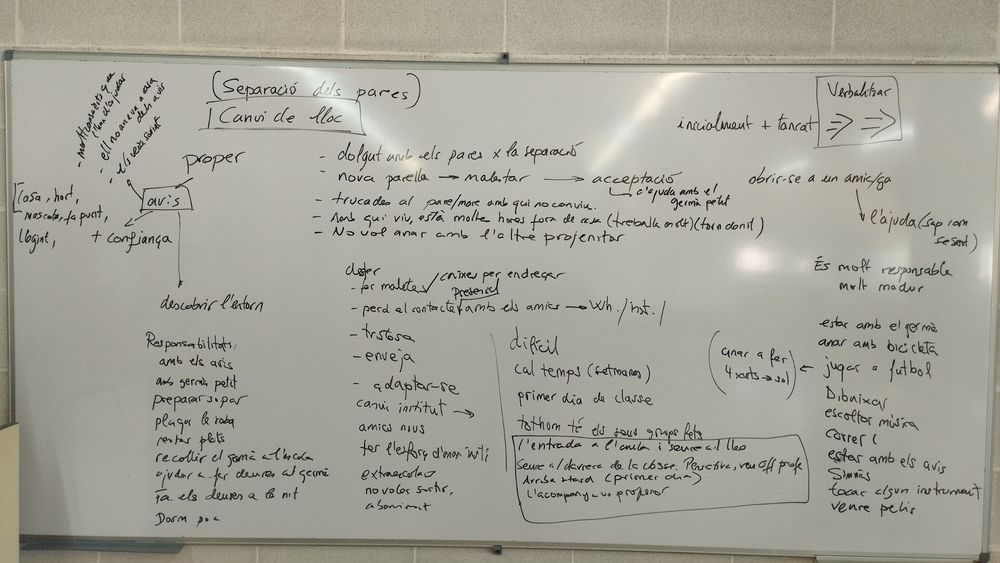 (Separació dels pares)
Canvi de lloc
Verbalitzar
inicialment + tancat
proper
avis
+ confiança
Casa, hort,
descobrir l'entorn
- dolgut amb els pares x la separació
- nova parella → malestar → acceptació
l'ajuda amb el
germà petit
- trucades al pare/mare amb qui no conviu.
- Amb qui viu, està moltes hores fora de casa (treballa molt) (torn de nit)
- No vol anar amb l'altre projenitor
obrir-se a un amic/ga
l'ajuda (sap com
se sent)
És molt responsable
molt madur
Responsabilitats:
amb els avis
amb germà petit
preparar sopar
plegar la roba
rentar plats
recollir el germà a l'escola
ajudar a fer deures al germà
fa els deures a la nit
Dorm poc
- fer maletes
caixes per endreçar
presencial
- perd el contacte amb els amics → Wh./inst./
- tristesa
- enveja
- adaptar-se
canvi institut →
amics nous
fer l'esforç d'anar
extraescolar
no voler sortir,
avorriment
difícil
cal temps (setmanes)
primer dia de classe
tothom té els seus grups fets
l'entrada a l'aula i seure al lloc
Seure al darrera de la classe. Perspectiva, veu off profe
Arriba tard (primer dia)
L'acompanya un professor
estar amb el germà
anar amb bicicleta
jugar a futbol
(anar a fer
4 xuts → sol)
Dibuixar
escoltar música
correr (
estar amb els avis
Gimnàs
tocar algun instrument
veure pelis